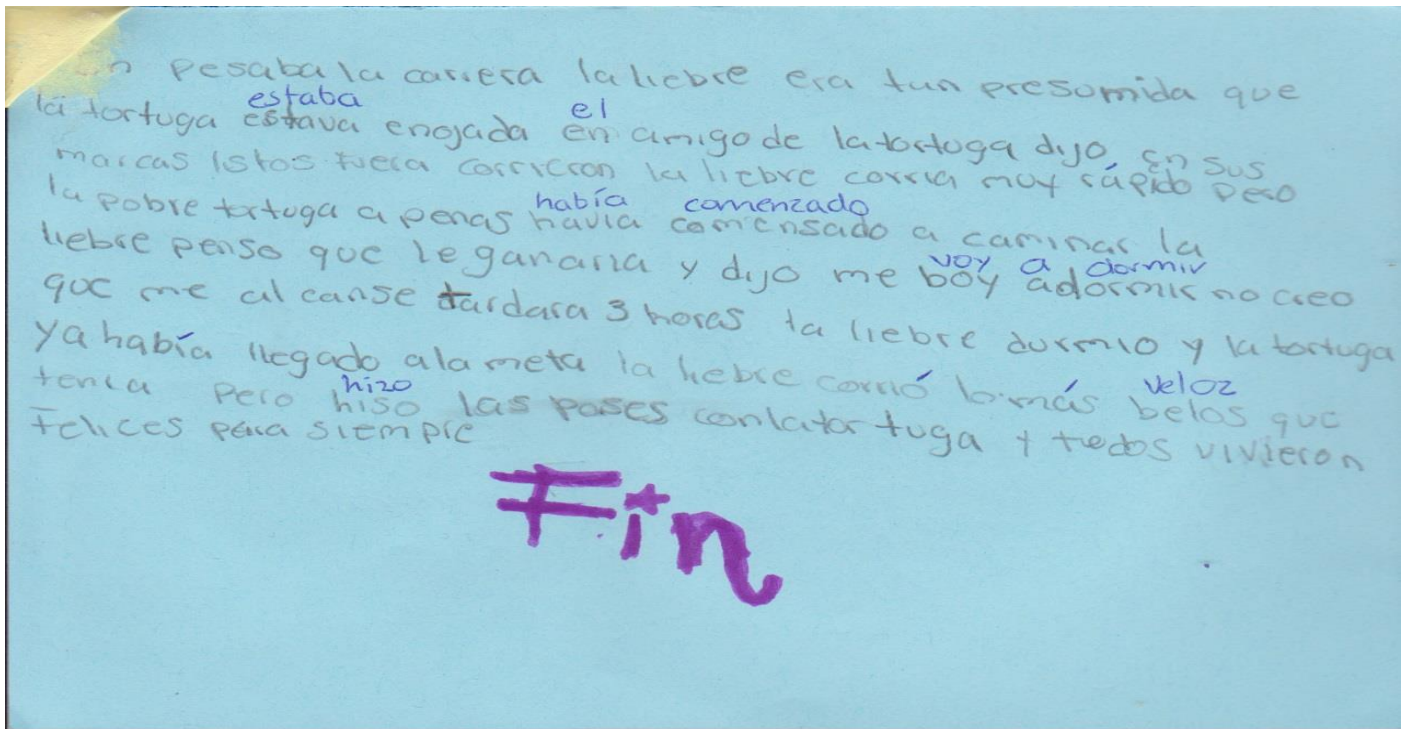 pesaba la carrera la liebre era tan presumida que
estaba el
la tortuga estava enojada en amigo de la tortuga dijo, en sus
marcas listos fuera corrieron la liebre corria muy rápido pero
había comenzado
la pobre tortuga a penas havia comensado a caminar la
voy a dormir
liebre penso que le ganaria y dijo me boy adormir no creo
que me al canse tardara 3 horas la liebre durmio y la tortuga
ya había llegado ala meta la liebre corrió lo más belos que
hizo veloz
tenia pero hiso las pases conlatortuga y todos vivieron
felices para siempre
Fin